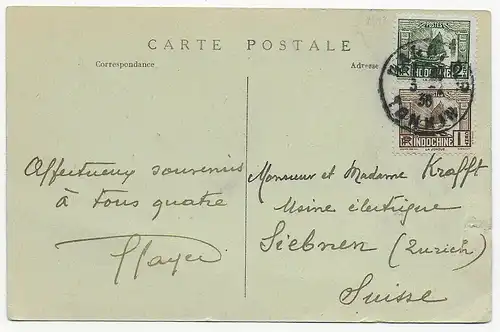 CARTE POSTALE
Correspondance
Adresse
POSTES
INDOCHINE 2
HANOI
36
TONKIN
INDOCHINE 1
LA JONQUE
Affectueux souvenirs
à tous quatre
Monsieur et Madame Krafft
Usine électrique
Siebnen (Zurich)
Suisse